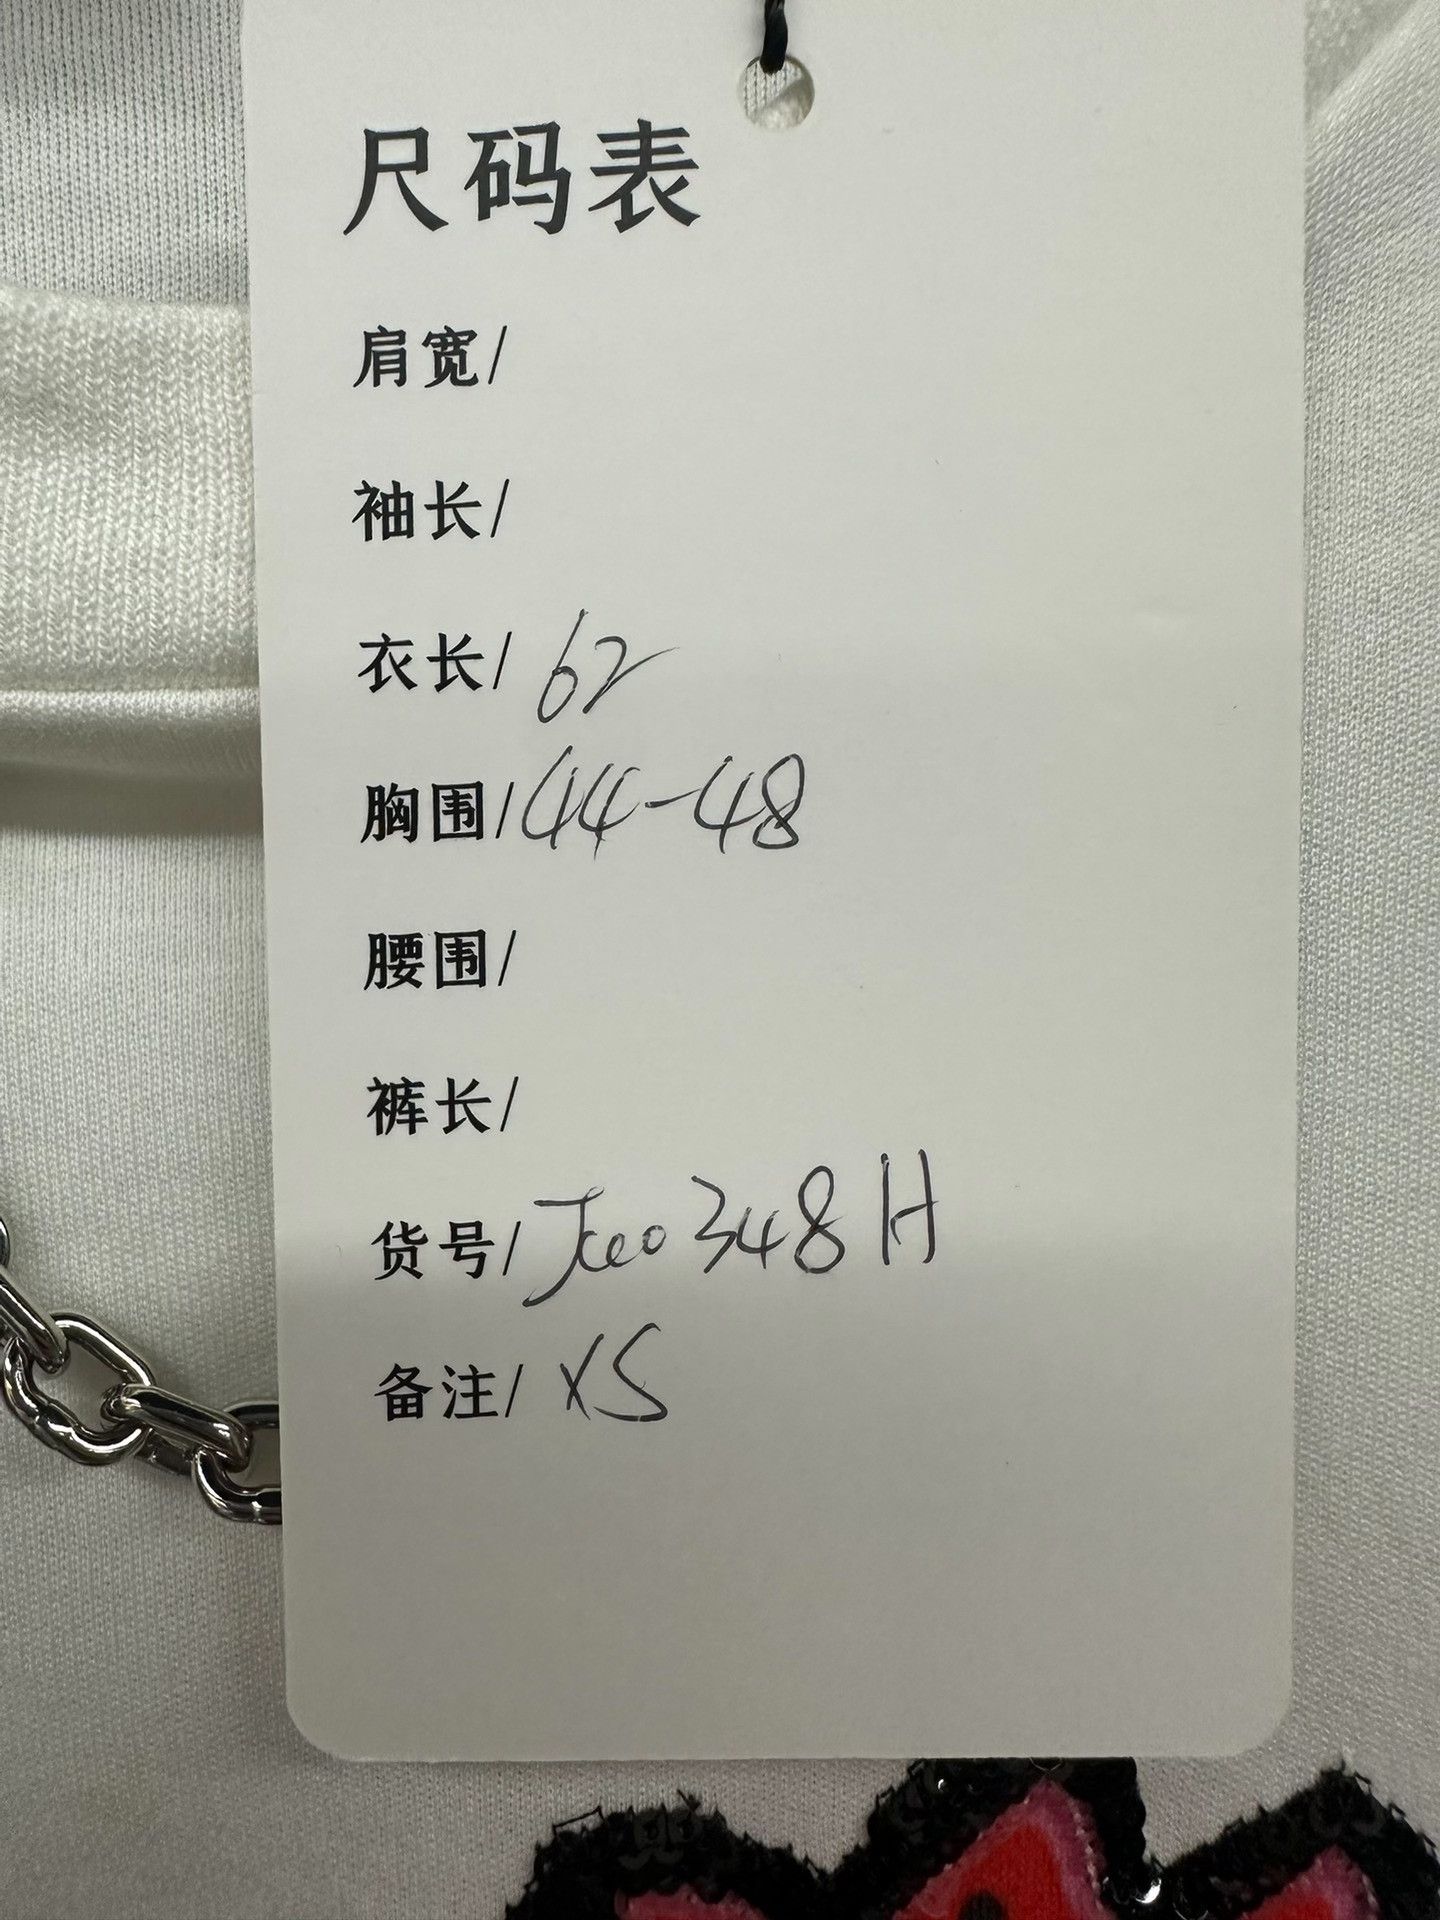 尺码表
肩宽/
袖长/
衣长/ 62
胸围/ 44-48
腰围/
裤长/
货号/
备注/ XS